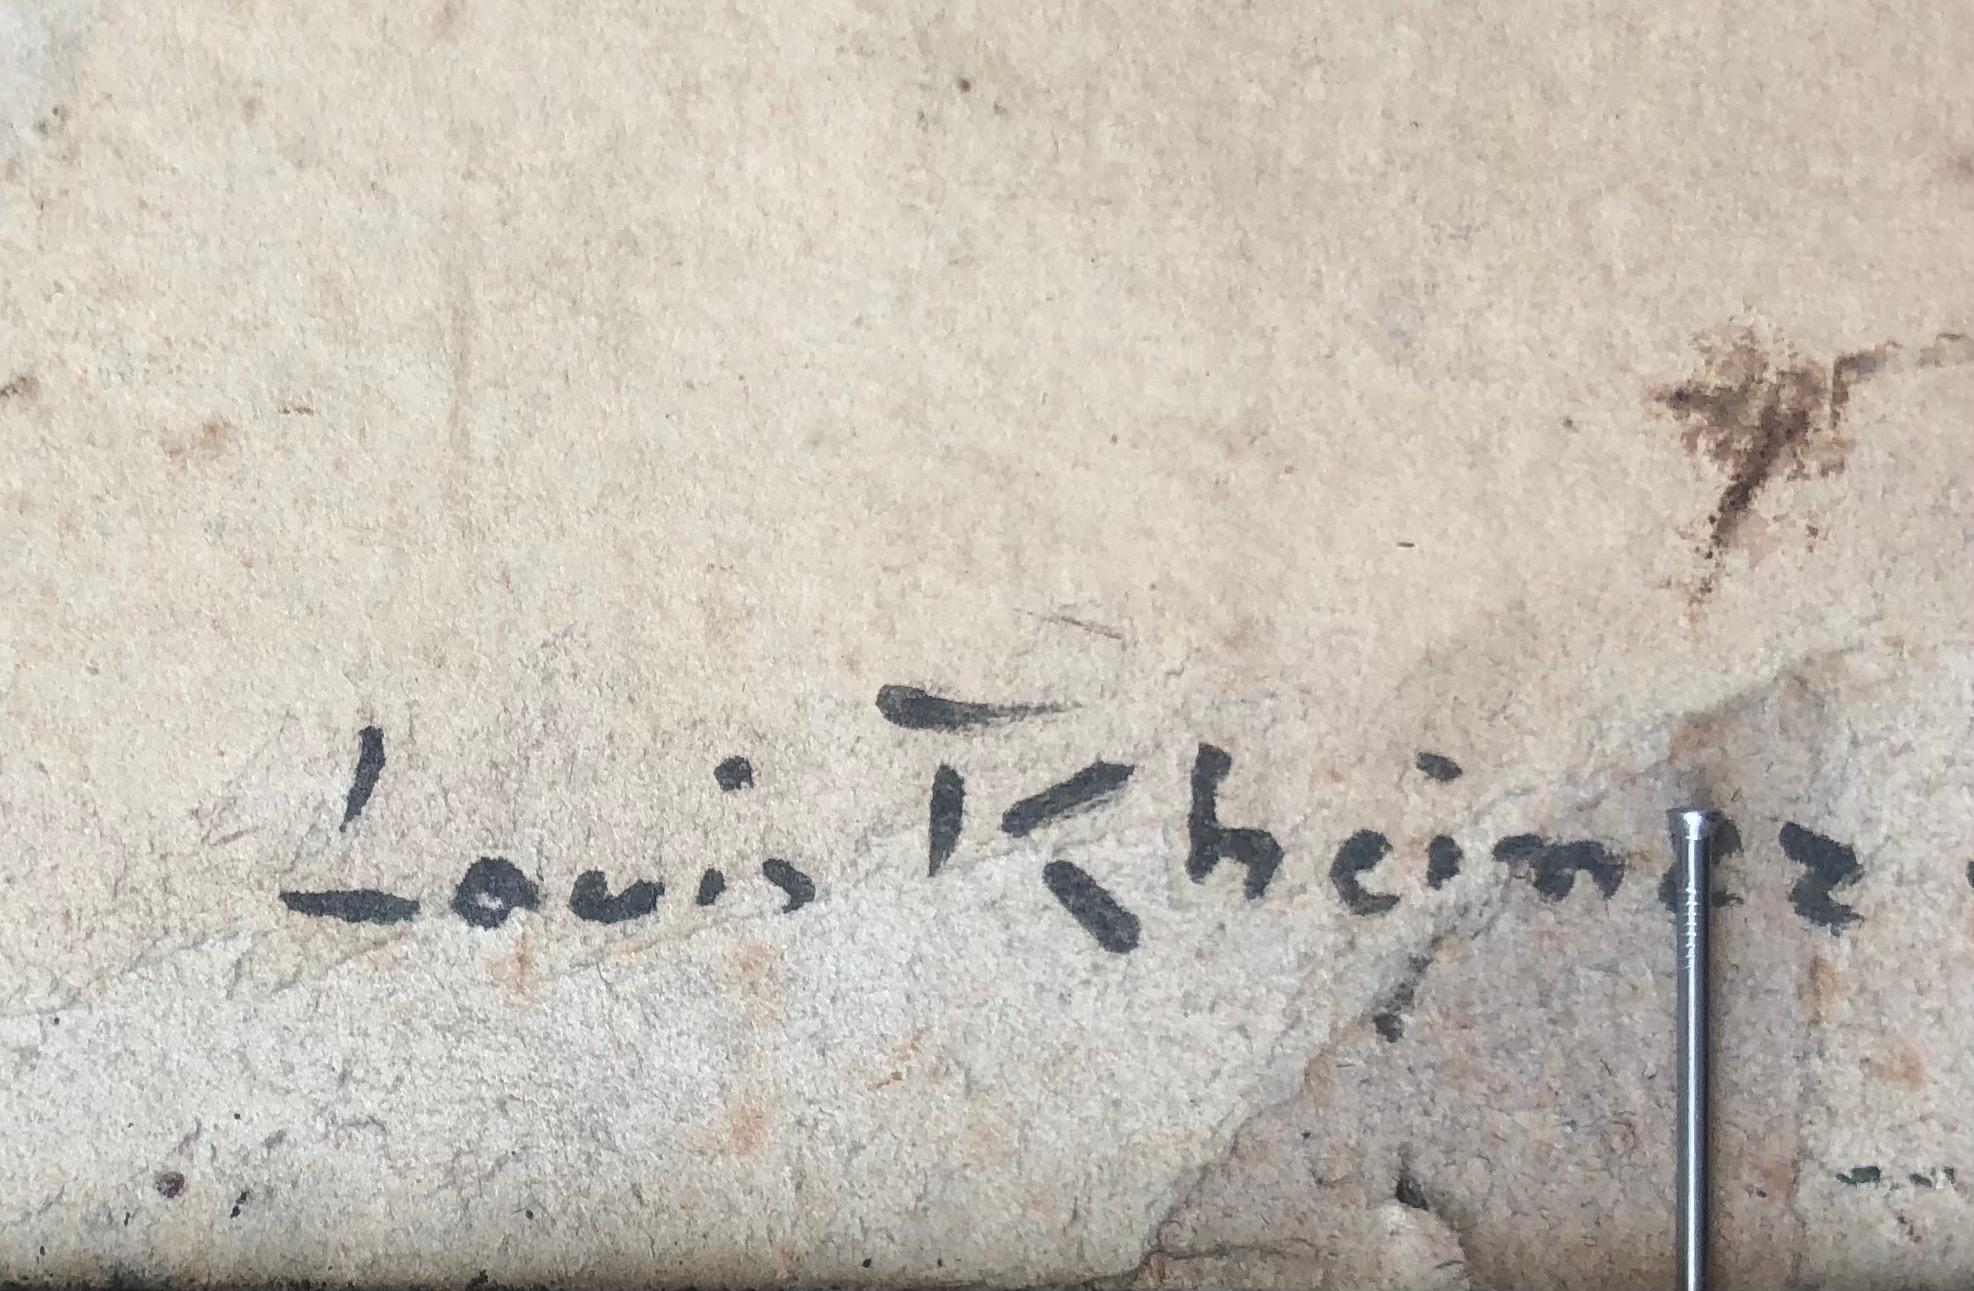 Louis Rheiner.